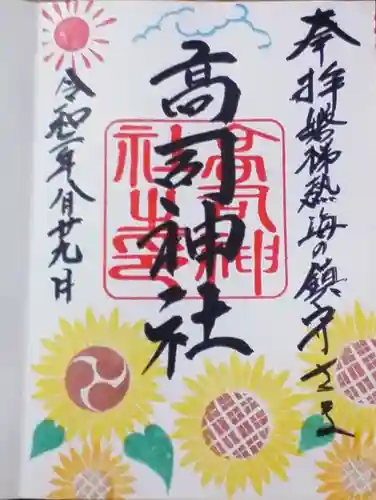 奉拝 磐梯熱海の鎮守さま
高司神社
高司神社之印
令和二年八月廿九日